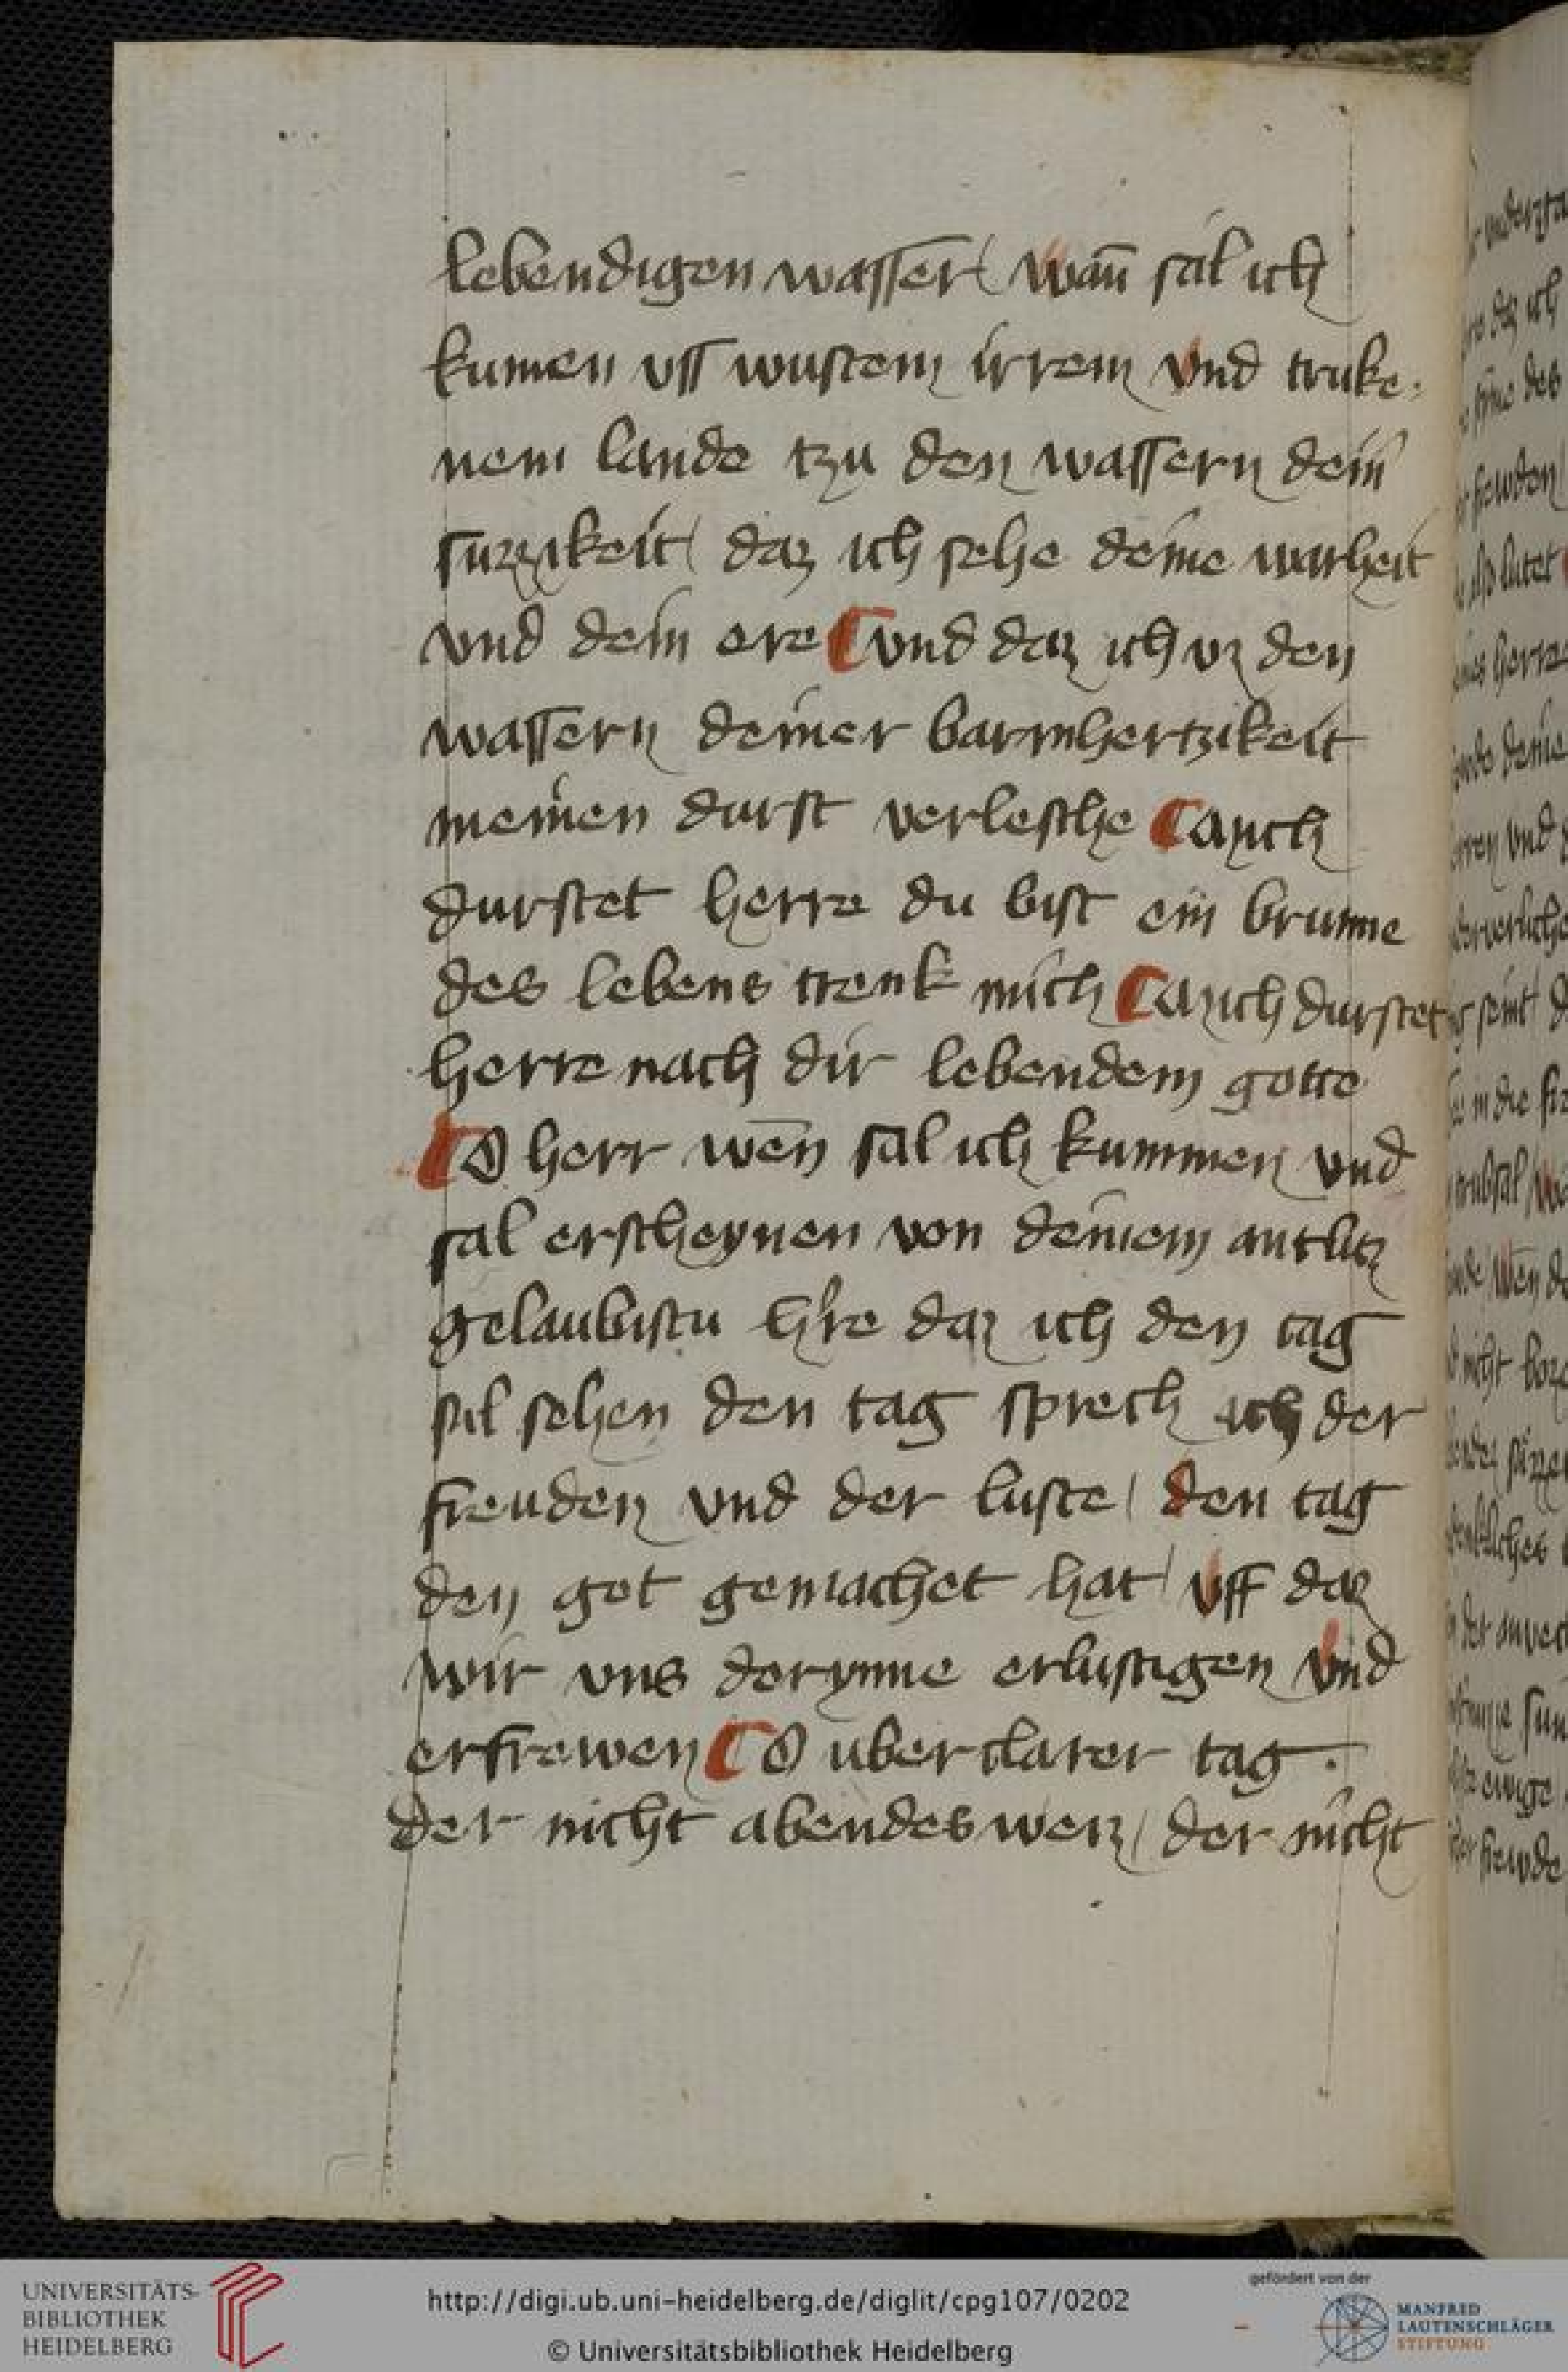 lebendigen wasser / wan̄ sal ich
kumen vss wustem irrem vnd truke-
nem lande tzu den wassern dein̄
suzzikeit / daz ich sehe deine warheit
vnd dein ere ¶ vnd daz ich vz den
wassern deiner barmhertzikeit
meinen durst verlesche ¶ Mich
durstet herre du bist ein brunne
des lebens trenk mich ¶ Mich durstet
herre nach dir lebendem gotte
¶ O herr wen̄ sal ich kummen vnd
sal erscheynen von deinem antlitz
gelaubistu h're daz ich den tag
sal sehen den tag sprech ich der
freuden vnd der luste / den tag
den got gemachet hat / vff daz
wir vns derynne erlustigen vnd
erfrewen ¶ O uberclarer tag .
der nicht abendes weiz / der nicht
UNIVERSITÄTS-
BIBLIOTHEK
HEIDELBERG
http://digi.ub.uni-heidelberg.de/diglit/cpg107/0202
© Universitätsbibliothek Heidelberg
gefördert von der
MANFRED
LAUTENSCHLÄGER
STIFTUNG